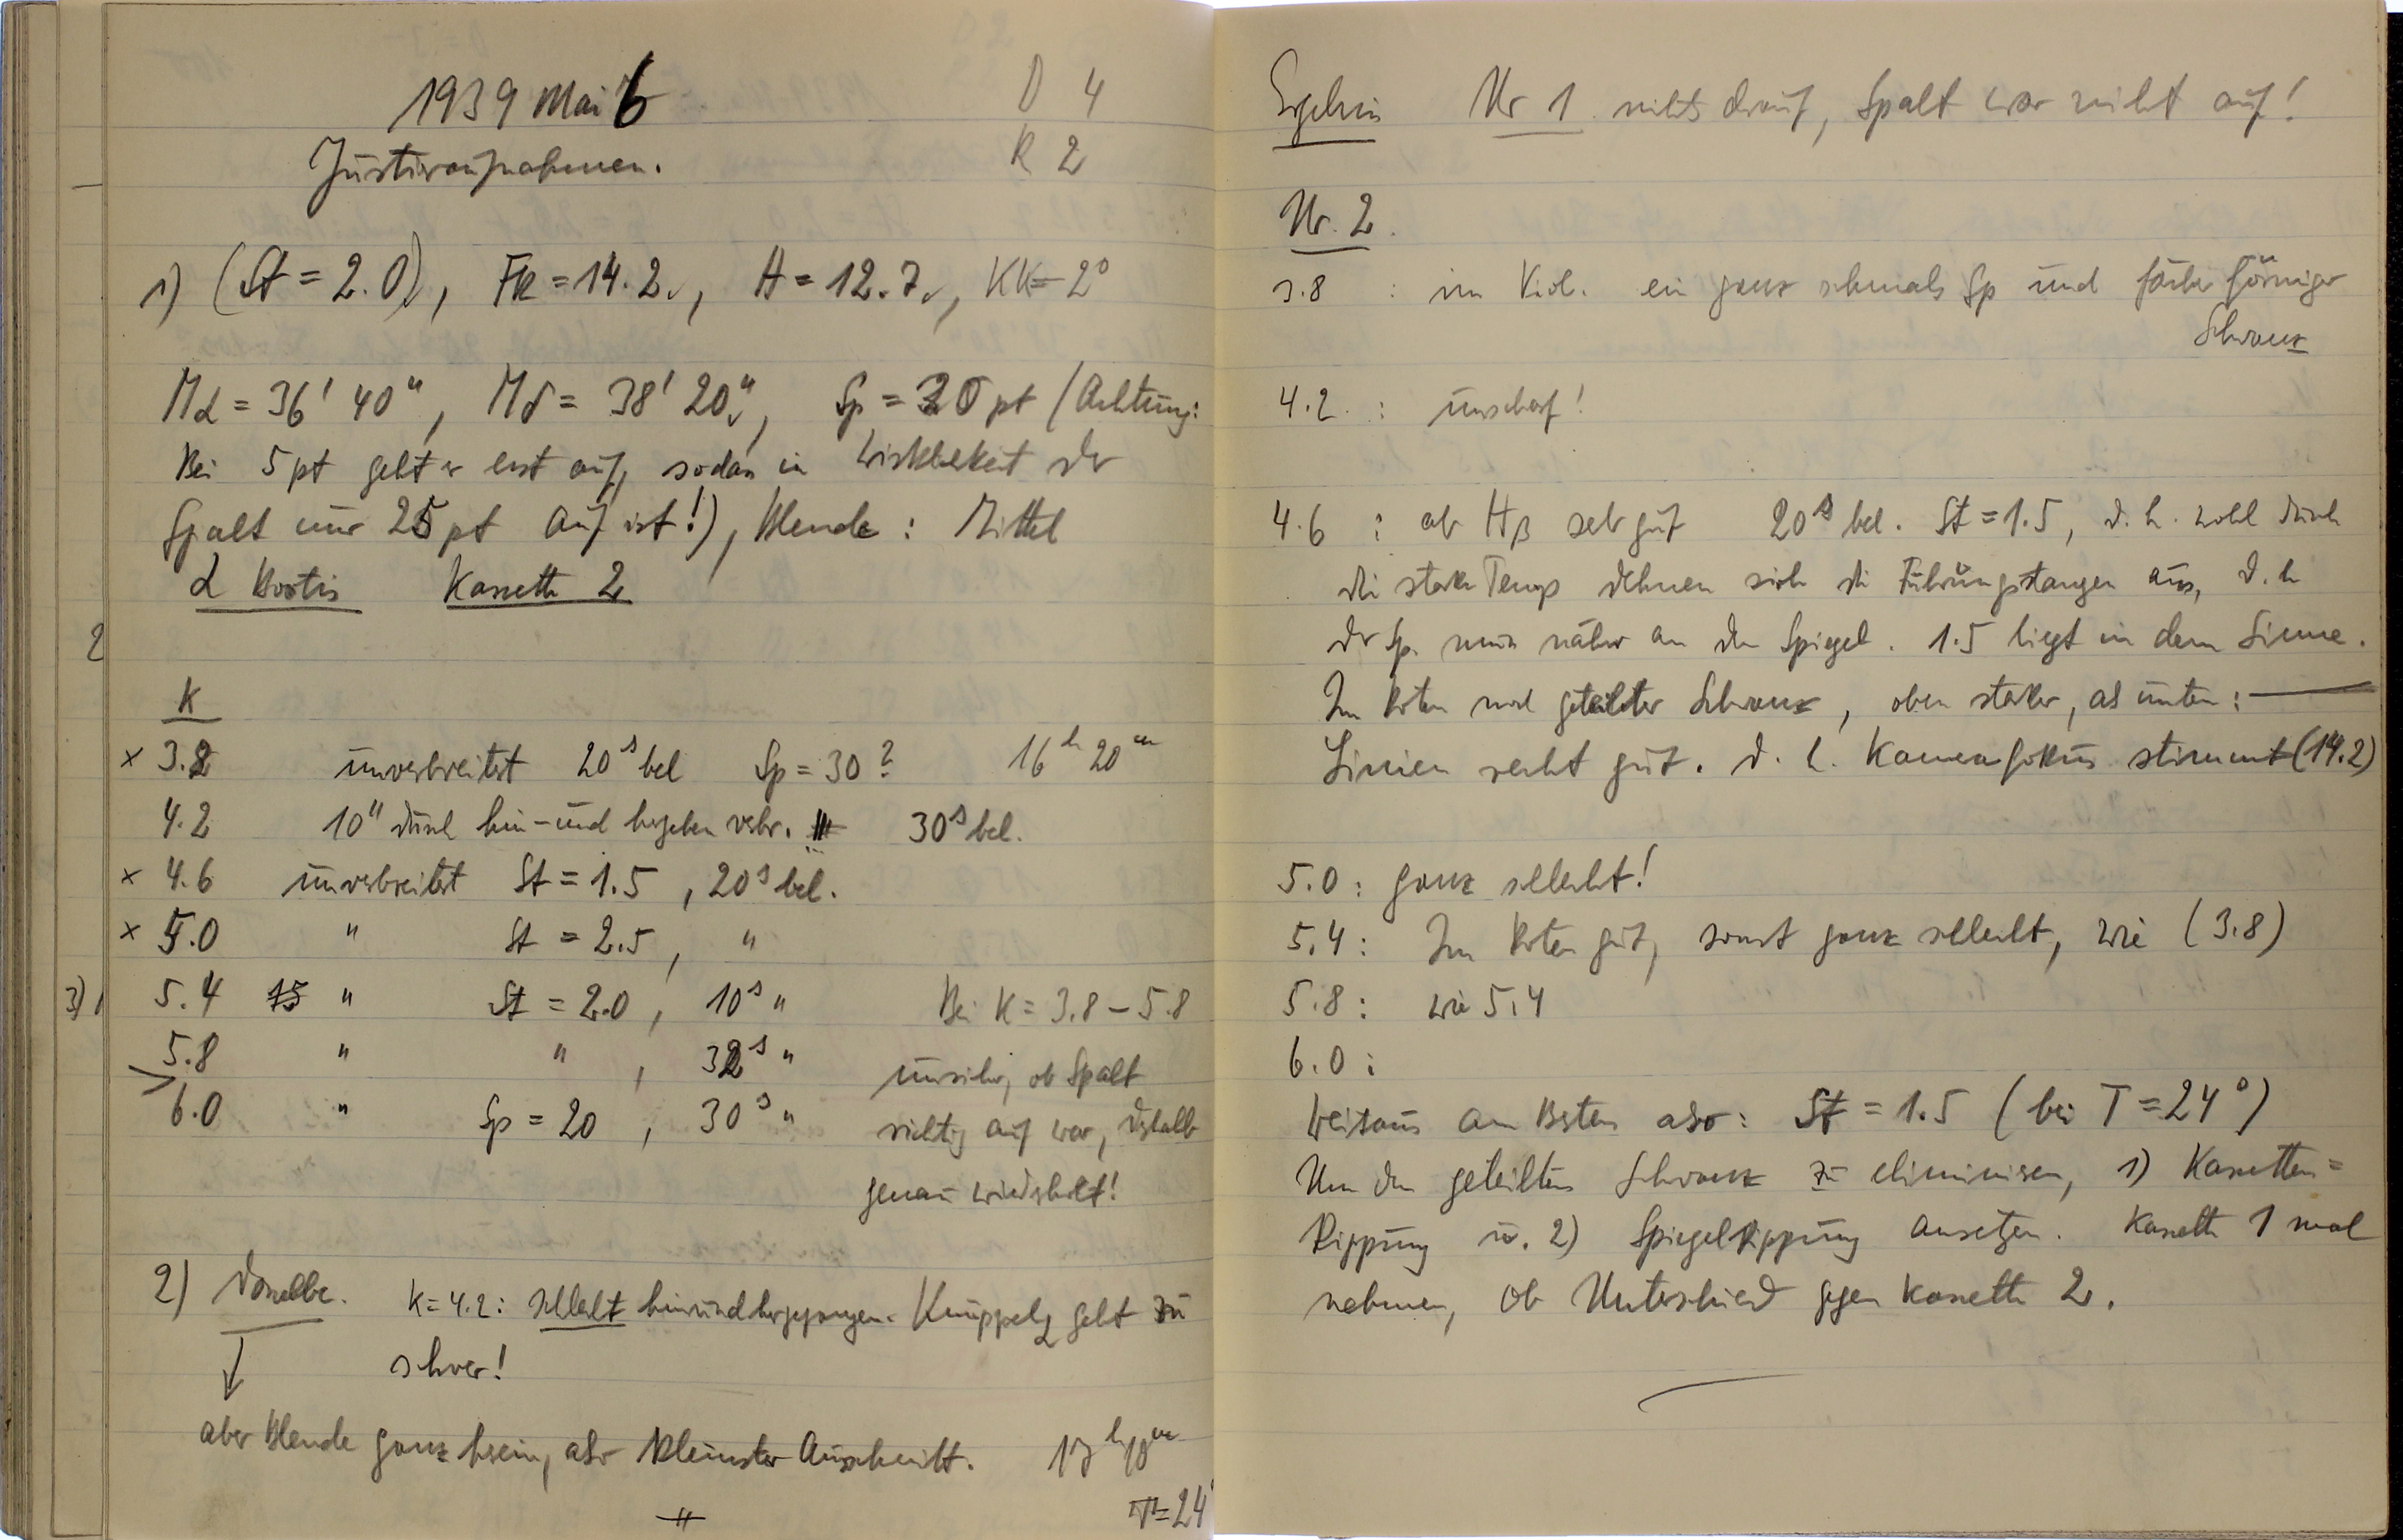 1939 Mai 6
D 4
Justieraufnahmen.
R 2
1) (St = 2.0), Fk = 14.2, H = 12.7, KK = 2°
Mα = 36' 40", Mδ = 38' 20", Sp = 20 pt (Achtung:
Bei 5 pt geht er erst auf, sodas in Wirklichkeit der
Spalt nur 25 pt auf ist!), Blende: Mittel
α Bootis Kassette 2
2
K
× 3.8 unverbreitert 20s bel Sp = 30? 16h 20m
4.2 10" durch hin- und hergehen verbr. 30s bel.
× 4.6 unverbreitert St = 1.5, 20s bel.
× 5.0 " St = 2.5, "
3) 5.4 " St = 2.0, 10s " Bei K = 3.8 – 5.8
5.8 " ", 32s " unsicher, ob Spalt
6.0 " Sp = 20, 30s " richtig auf war, deshalb
genau wiederholt!
2) Dasselbe. K = 4.2: schlecht hin und hergegangen. Knüppel geht zu
schwer!
aber Blende ganz herein, also kleinster Ausschnitt.
T = 24°
Ergebnis Nr 1 nichts drauf, Spalt war nicht auf!
Nr. 2.
3.8 : im Viol. ein ganz schmales Sp und fächerförmiger
Schwanz
4.2. : unscharf!
4.6 : ab Hβ sehr gut 20s bel. St = 1.5, d. h. wohl durch
die starke Temp dehnen sich die Führungstangen aus, d. h
der Sp. muss näher an den Spiegel. 1.5 liegt in dem Sinne.
Im Roten noch geteilter Schwanz, oben starker, als unten: —
Linien recht gut. d. h. Kamerafokus stimmt (14.2)
5.0 : ganz schlecht!
5.4 : Im Roten gut, sonst ganz schlecht, wie (3.8)
5.8 : wie 5.4
6.0 :
Weitaus am Besten also: St = 1.5 (bei T = 24°)
Um den geteilten Schwanz zu eliminieren, 1) Kassetten=
kippung u. 2) Spiegelkippung ansetzen. Kassette 1 mal
nehmen, ob Unterschied gegen Kassette 2.